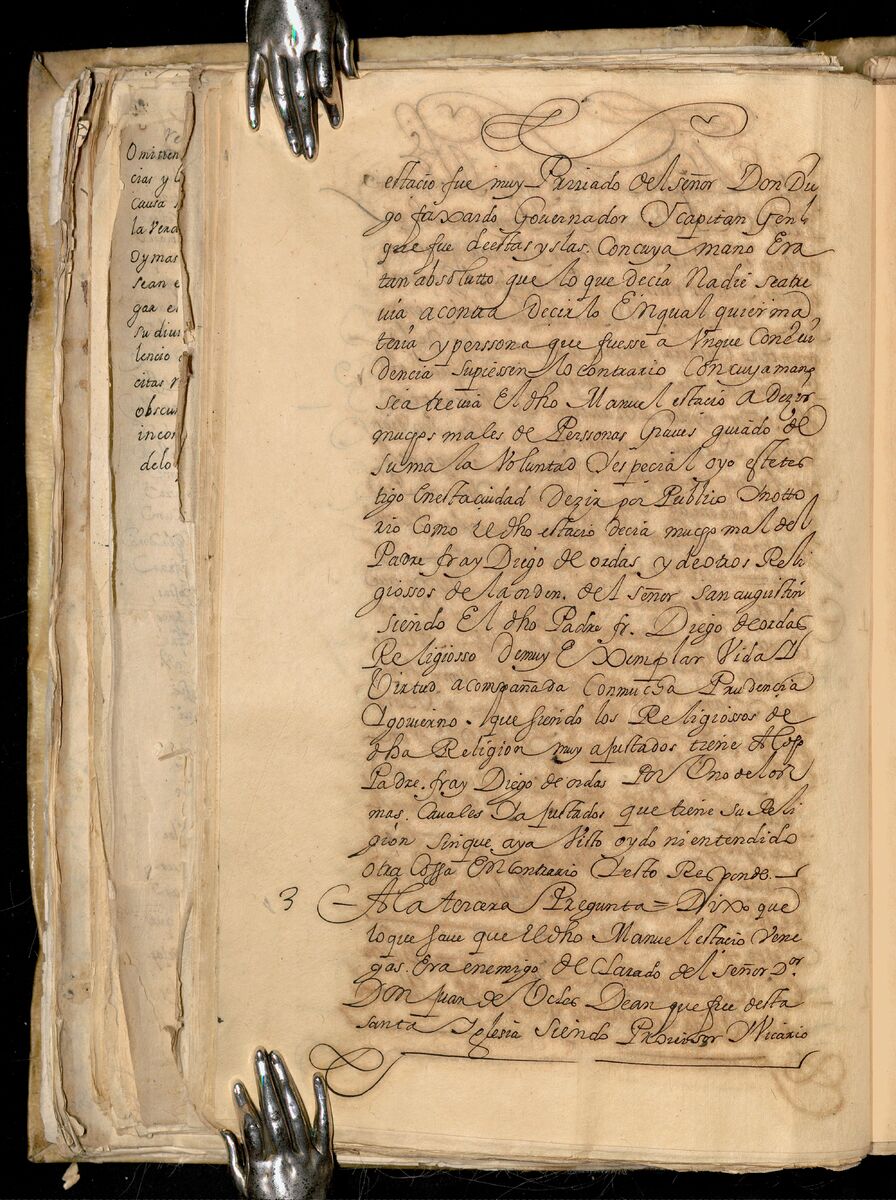 Omitien
cias y l
causa s
la verd
oymas
sean e
gar e
su diu
lencio
citas
obscu
incon
delo
estacio fue muy Priuado del señor Don Di
go faxardo Gouernador Ycapitan Genl
que fue deestas yslas. Concuya mano Era
tan absolutto que lo que decia Nadie seatre
uia acontra decirlo Enqual quier ma
teria y perssona que fuesse a Unque Con eui
dencia supiessen lo contrario Concuya mano
seatreuia El dho Manuel estacio a Dezir
muchos males de Perssonas Graues guiado de
su mala Voluntad Yespecial oyo estetes
tigo Enestaciudad Dezir por Publico Ynotto
rio Como el dho estacio decia mucho mal del
Padre fray Diego de ordas y deotros Reli
giossos de laorden. del señor san augustin
siendo El dho Padre fr. Diego deordas
Religiosso demuy Exemplar Vida Y
Virtud acompañada Conmucha Prudencia
Ygouierno. que siendo los Religiossos de
dha Religion muy ajustados tiene Al dho
Padre. fray Diego de ordas Por Uno delos
mas. Cauales Yajustados que tiene su Reli
gión sinque aya Visto oydo ni entendido
otra Cossa Encontrario Yesto Responde.
3 A la tercera Pregunta = Dixo que
lo que saue que el dho Manuel estacio Vene
gas. Era enemigo de Clarado del señor Dor.
Don Juan de Veles Dean que fue desta
santa Iglesia siendo Prouisor Yvicario